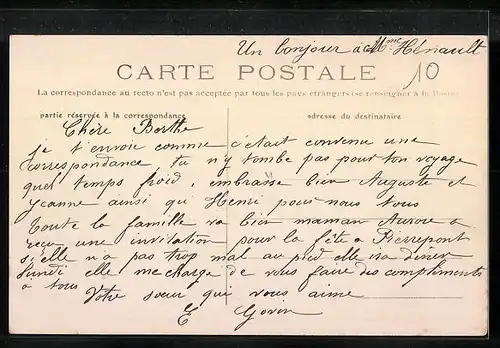 Un bonjour à Mme Hénault
CARTE POSTALE
10
La correspondance au recto n'est pas acceptée par tous les pays étrangers (se renseigner à la Poste)
partie réservée à la correspondance
adresse du destinataire
Chère Berthe
je t'envoie comme c'était convenu une
correspondance, tu n'y tombe pas pour ton voyage
quel temps froid, embrasse bien Auguste et
Yeanne ainsi que Henri pour nous tous
toute la famille va bien maman Aurore a
reçu une invitation pour la fête a Pierrepont
si elle n a pas trop mal au pied elle ira diner
lundi elle me charge de vous faire des compliments
a tous
Votre sœur qui vous aime
E Govin